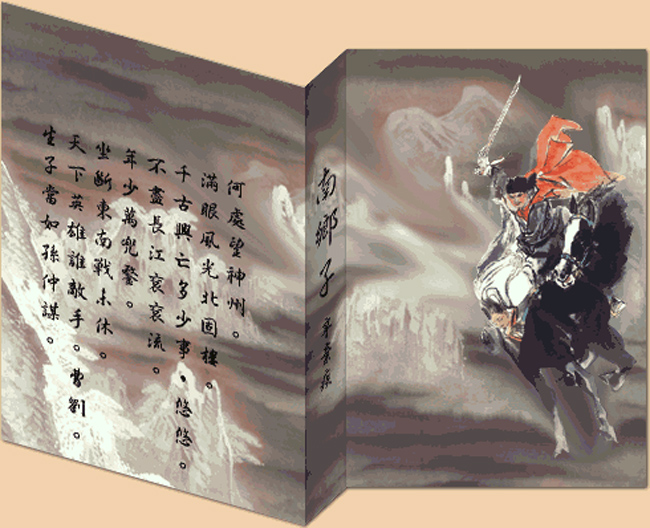 南鄉子 辛棄疾
何處望神州。
滿眼風光北固樓。
千古興亡多少事、悠悠。
不盡長江袞袞流。
年少萬兜鍪。
坐斷東南戰未休。
天下英雄誰敵手。曹劉。
生子當如孫仲謀。